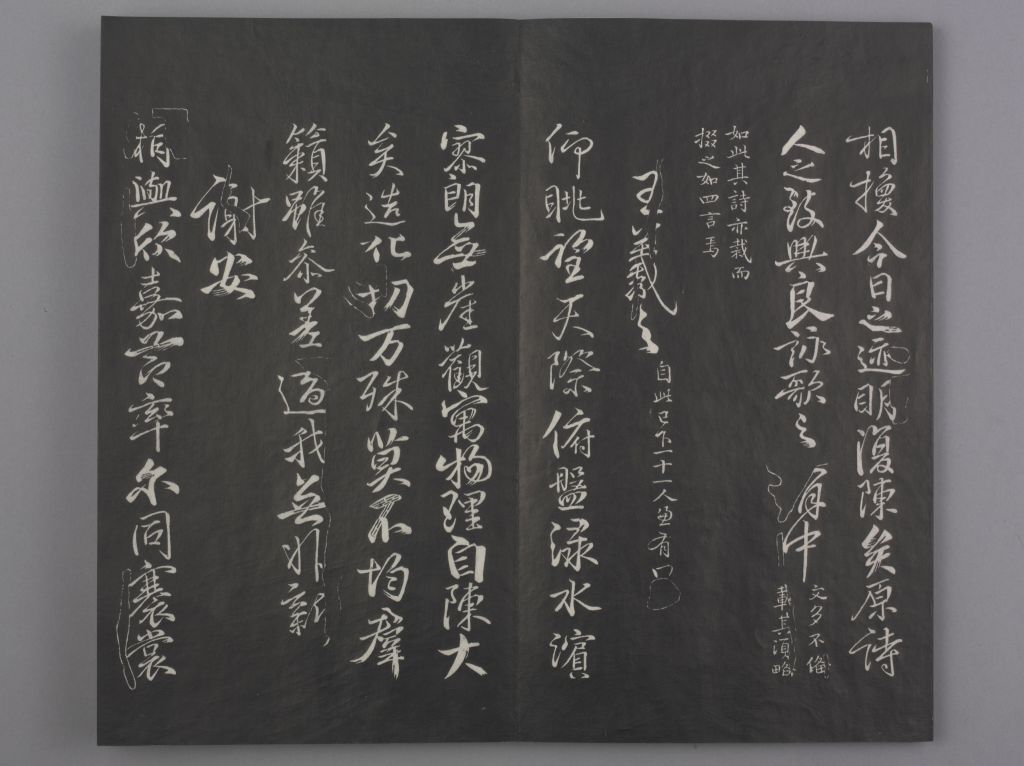 相換今日之迹明復陳矣原詩
人之致興良詠歌之有由
文多不備
載其須略
如此其詩亦裁而
掇之如四言焉
王羲之
自此已下一十一人並有
仰眺望天際俯盤渌水濱
寥朗無崖觀寓物理自陳大
矣造化功万殊莫不均羣
籟雖參差適我無非新
謝安
相與欣嘉節率尔同褰裳